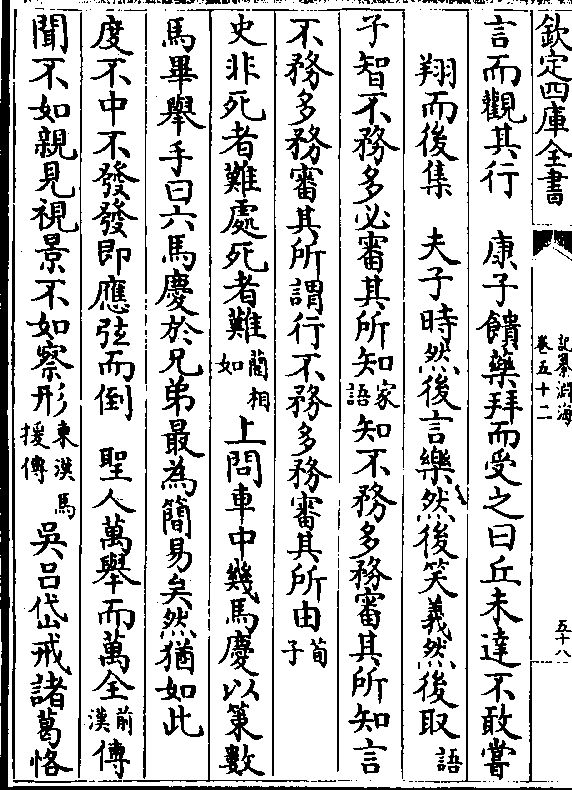 欽定四庫全書
記纂淵海
卷五十二
五十八
言而觀其行　康子饋藥拜而受之曰丘未達不敢嘗
翔而後集　夫子時然後言樂然後笑義然後取語
子智不務多必審其所知家語知不務多務審其所知言
不務多務審其所謂行不務多務審其所由荀子
史非死者難處死者難藺相如上問車中幾馬慶以策數
馬畢舉手曰六馬慶於兄弟最為簡易矣然猶如此
度不中不發發即應弦而倒　聖人萬舉而萬全前漢傳
聞不如親見視景不如察形東漢馬援傳吳呂岱戒諸葛恪